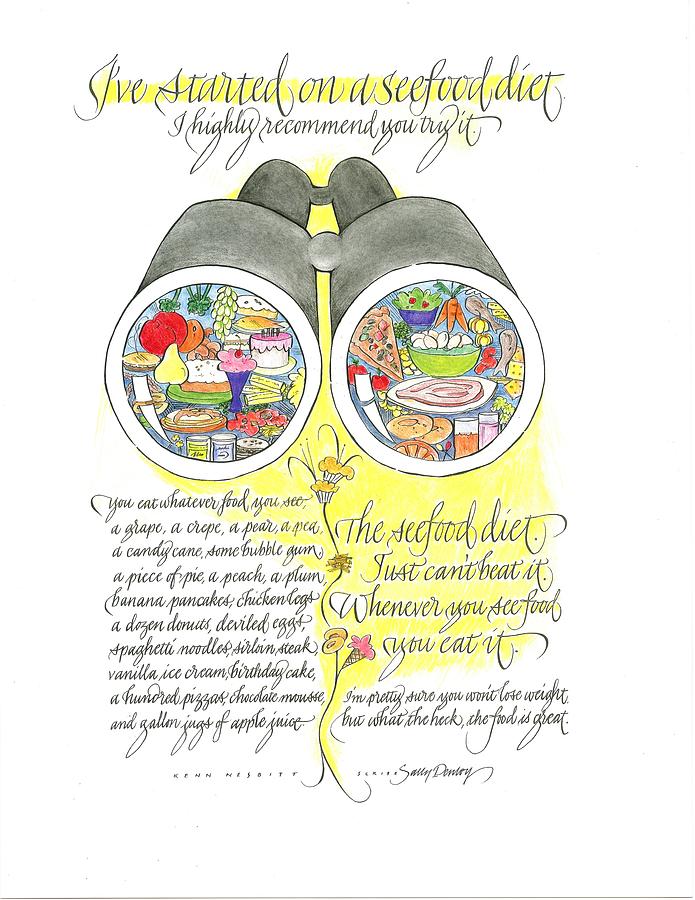 I've started on a seefood diet.
I highly recommend you try it.
You eat whatever food you see,
a grape, a crepe, a pear, a pea,
a candy cane, some bubble gum,
a piece of pie, a peach, a plum,
banana pancakes, chicken legs
a dozen donuts, deviled eggs,
spaghetti noodles, sirloin steak,
vanilla ice cream, birthday cake,
a hundred pizzas, chocolate mousse,
and gallon jugs of apple juice
The seefood diet.
Just can't beat it.
Whenever you see food
you eat it.
I'm pretty sure you won't lose weight,
but what the heck, the food is great.
KENN NESBITT
SCRIBE Sally Penley